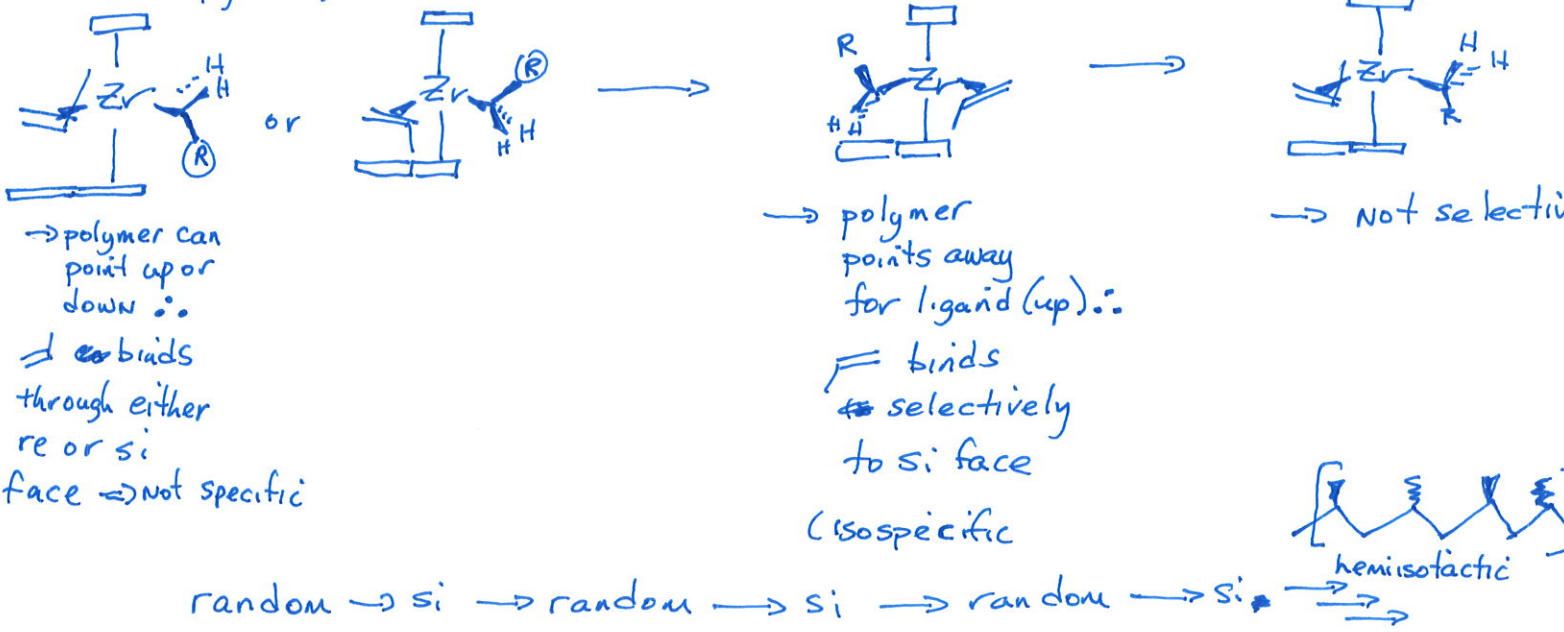 Zr H H R
or
Zr R H H
R Zr H H
Zr H H R
→ polymer can
point up or
down ∴
binds
through either
re or si
face ⇒ Not specific
→ polymer
points away
for ligand (up) ∴
binds
selectively
to si face
(isospecific
→ Not selectiv
hemiisotactic
random → si → random → si → random → si